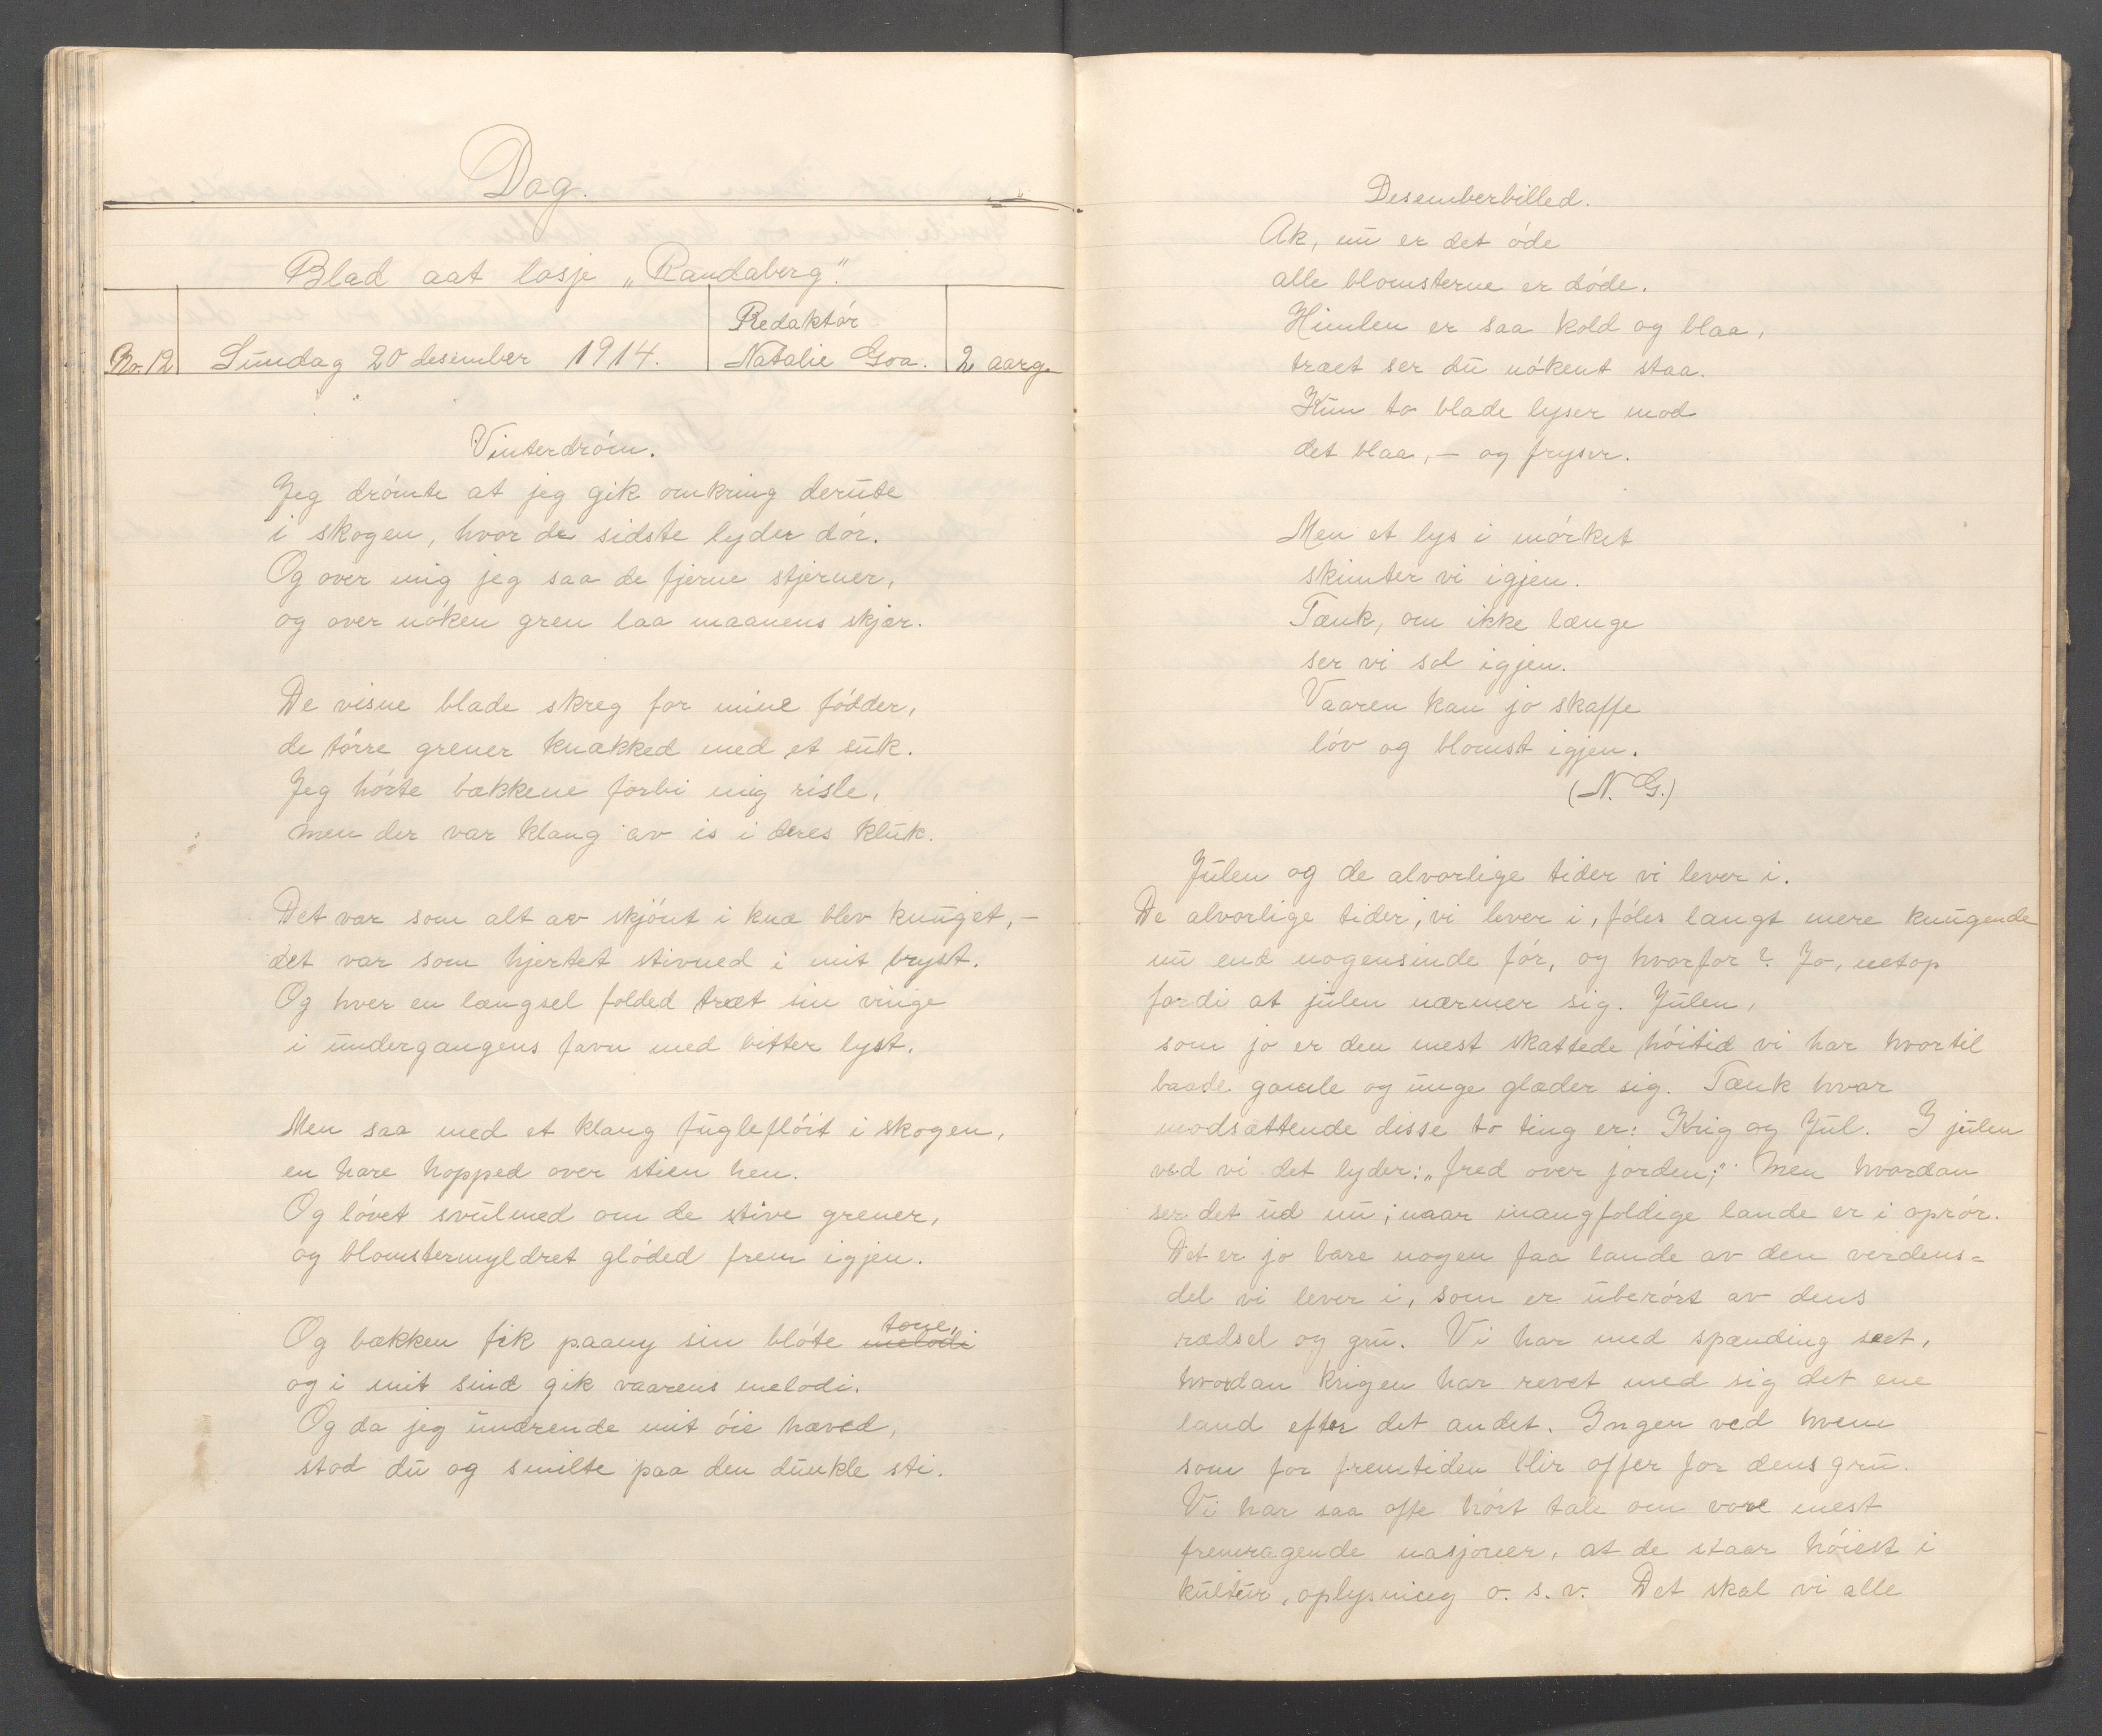 Dag.
Blad aat losje „Randaberg".
No. 12 Sundag 20 desember 1914. Redaktór Natalie Goa. 2 aarg.
Vinterdróm.
Jeg drómte at jeg gik omkring derute
i skogen, hvor de sidste lyder dór.
Og over mig jeg saa de fjerne stjerner,
og over nóken gren laa maanens skjær.
De visne blade skreg for mine fódder,
de tórre grener knækked med et suk.
Jeg hórte bækkene forbi mig risle,
men der var klang av is i deres kluk.
Det var som alt av skjónt i knæ blev knuget, —
det var som hjertet stivned i mit bryst.
Og hver en længsel folded træt sin vinge
i undergangens favn med bitter lyst.
Men saa med et klang fugleflóit i skogen,
en hare hopped over stien hen.
Og lóvet svulmed om de stive grener,
og blomstermyldret glóded frem igjen.
Og bækken fik paany sin blóte melodi tone,
og i mit sind gik vaarens melodi.
Og da jeg undrende mit óie hæved,
stod du og smilte paa den dunkle sti.
Desemberbilled.
Ak, nu er det óde
alle blomsterne er dóde.
Himlen er saa kold og blaa,
træet ser du nókent staa.
Kun to blade lyser mod
det blaa, — og fryser.
Men et lys i mórket
skimter vi igjen.
Tænk, om ikke længe
ser vi sol igjen.
Vaaren kan jo skaffe
lóv og blomst igjen.
(N. G.)
Julen og de alvorlige tider vi lever i.
De alvorlige tider, vi lever i, fóles langt mere knugende
nu end nogensinde fór, og hvorfor? Jo, netop
fordi at julen nærmer sig. Julen,
som jo er den mest skattede hóitid vi har hvortil
baade gamle og unge glæder sig. Tænk hvor
modsættende disse to ting er: Krig og Jul. I julen
ved vi det lyder: „fred over jorden;" Men hvordan
ser det ud nu; naar mangfoldige lande er i oprór.
Det er jo bare nogen faa lande av den verdens=
del vi lever i, som er uberórt av dens
rædsel og gru. Vi har med spænding seet,
hvordan krigen har revet med sig det ene
land efter det andet. Ingen ved hvem
som for fremtiden blir offer for dens gru.
Vi har saa ofte hórt tale om vore mest
fremragende nasjoner, at de staar hóiest i
kultur, oplysning o. s. v. Det skal vi alle